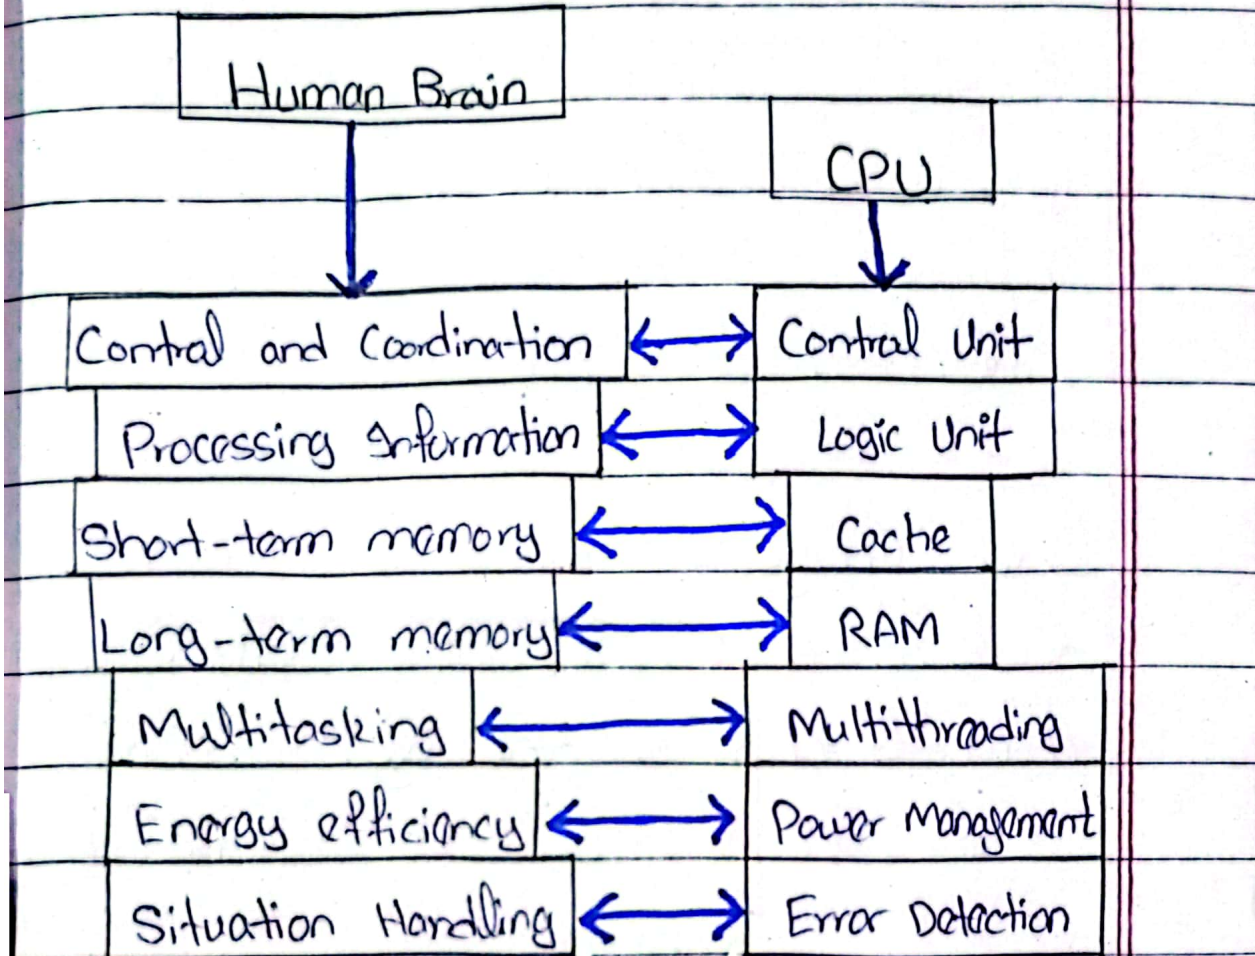 Human Brain
CPU
Control and Coordination
Control Unit
Processing Information
Logic Unit
Short-term memory
Cache
Long-term memory
RAM
Multitasking
Multithreading
Energy efficiency
Power Management
Situation Handling
Error Detection